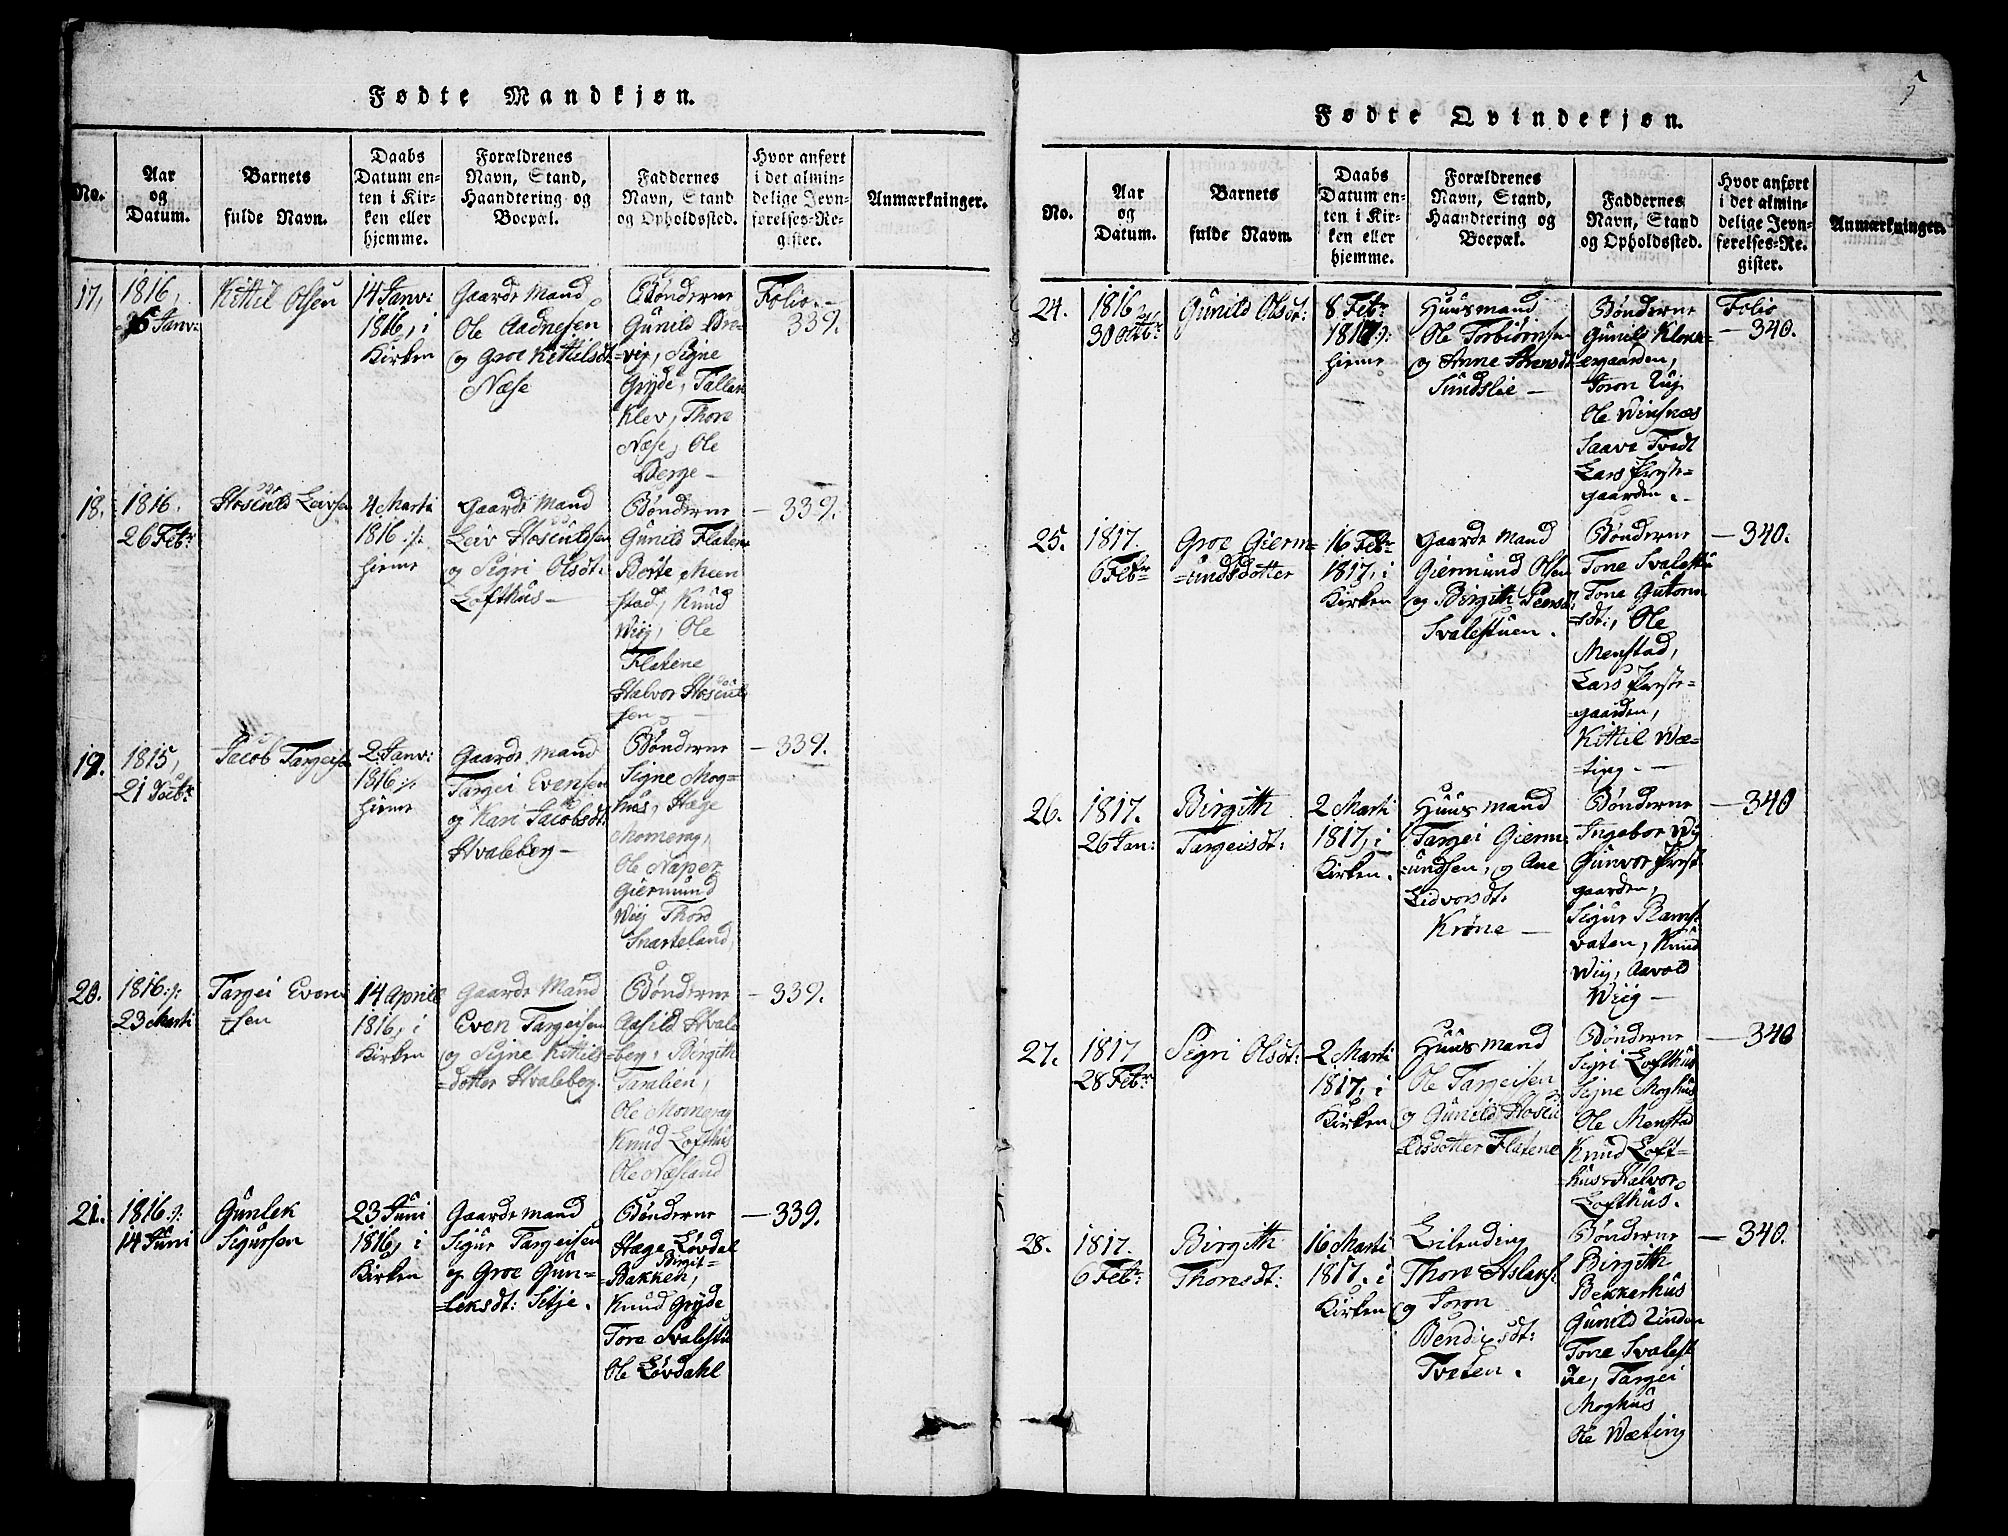 Fødte Mandkjøn.
No.
Aar
og
Datum.
Barnets
fulde Navn.
Daabs
Datum en-
ten i Kir-
ken eller
hjemme.
Forældrenes
Navn, Stand,
Haandtering og
Boepæl.
Faddernes
Navn, Stand
og Opholdssted.
Hvor anført
i det almin-
delige Jevn-
førelses-Re-
gister.
Anmærkninger.
17,
1816,
6 Janv:
Kittil Olsen
14 Janv:
1816, i
Kirken
Gaarde Mand
Ole Aadnesen
og Groe Kittilsdt.
Næse
Bønderne
Gunild
Signe
Gryde, Tallak
Klev, Thore
Næse, Ole
Berge -
Folio -
339.
18.
1816.
26 Febr
Hosuld Leivsen
4 Marti
1816 :/:
hieme
Gaarde Mand
Leiv Hosuldsen
og Sigri Olsdt:
Lofthus -
Bønderne
Gunild Flatene
Berte Men
stad, Knud
Wiig, Ole
Flatene
Halvor Hosuld
sen -
- 339.
19.
1815,
21 Decbr
Jacob Targeisen
2 Janv:
1816 :/:
hieme
Gaarde Mand
Targei Evensen
og Kari Jacobsdt:
Hvaleberg -
Bønderne
Signe Mog=
hus, Hæge
Momerag,
Ole Naper
Giermund
Wiig Thord
Snarteland,
- 339.
20.
1816 :/:
23 Marti
Targei Even
=sen
14 Aprile
1816, i
Kirken
Gaarde Mand
Even Targeisen
og Signe Kittils
=dotter Hvaleberg.
Bønderne
Aasild Hvale
=berg, Birgith
Tamlien,
Ole Momerag
Knud Lofthus
Ole Næsland
- 339.
21.
1816 :/:
14 Juni
Gunlek
Sigursen
23 Juni
1816, i
Kirken
Gaardemand
Sigur Targeisen
og Groe Gun=
=leksdt: Setje.
Bønderne
Hæge Løvdal
Birgit
Bakken,
Knud Gryde
Tore Svalestu
Ole Løvdahl
- 339.
Fødte Qvindekjøn.
No.
Aar
og
Datum.
Barnets
fulde Navn.
Daabs
Datum en-
ten i Kir-
ken eller
hjemme.
Forældrenes
Navn, Stand,
Haandtering og
Boepæl.
Faddernes
Navn, Stand
og Opholdssted.
Hvor anført
i det almin-
delige Jevn-
førelses-Re-
gister.
Anmærkninger.
24.
1816
30
Gunild Olsdt:
8 Febr
1817 :/:
hieme
Huusmand
Ole Torbiørnsen
og Anne Sørensdt
Sundslie -
Bønderne
Gunild Klokk=
=ergaarden,
Joron
Ole Winsnæs
Saave Tvedt
Lars Preste=
gaarden. -
Folio
- 340.
25.
1817.
6 Febr
Groe Gierm=
=undsdotter
16 Febr
1817, i
Kirken
Gaarde Mand
Giermund Olsen
og Birgith Peersd:
Svalestuen.
Bønderne
Tone Svalestu
Tone Gutorm
=sdt:, Ole
Menstad,
Lars Preste=
=gaarden,
Kittil Wæ=
ting. -
- 340.
26.
1817.
26 Jan:
Birgith
Targeisdt:
2 Marti
1817, i
Kirken.
Huusmand
Targei Gierm
=undsen, og Ane
Lidvorsdt:
Krøne -
Bønderne
Ingebor Wiig
Gunvor Prest
gaarden,
Sigur Rams
vaten, Knud
Wiig, Aavold
Wiig -
- 340
27.
1817
28 Febr
Segri Olsdt:
2 Marti
1817, i
Kirken
Huusmand
Ole Targeisen
og Gunild Hosul
=dsdotter Flatene
Bønderne
Sigri Lofthus
Signe Moghus
Ole Menstad
Knud Loft=
hus Halvor
Lofthus.
- 340
28.
1817.
6 Febr:
Birgith
Thoresdt:
16 Marti
1817, i
Kirken
Leilending
Thore Aslaks:
og Joron
Bendixsdt:
Tveten.
Bønderne
Birgith
Bekkerhus
Gunild Linden
Tone Svalest
ue, Targei
Moghus
Ole Wæting
- 340.